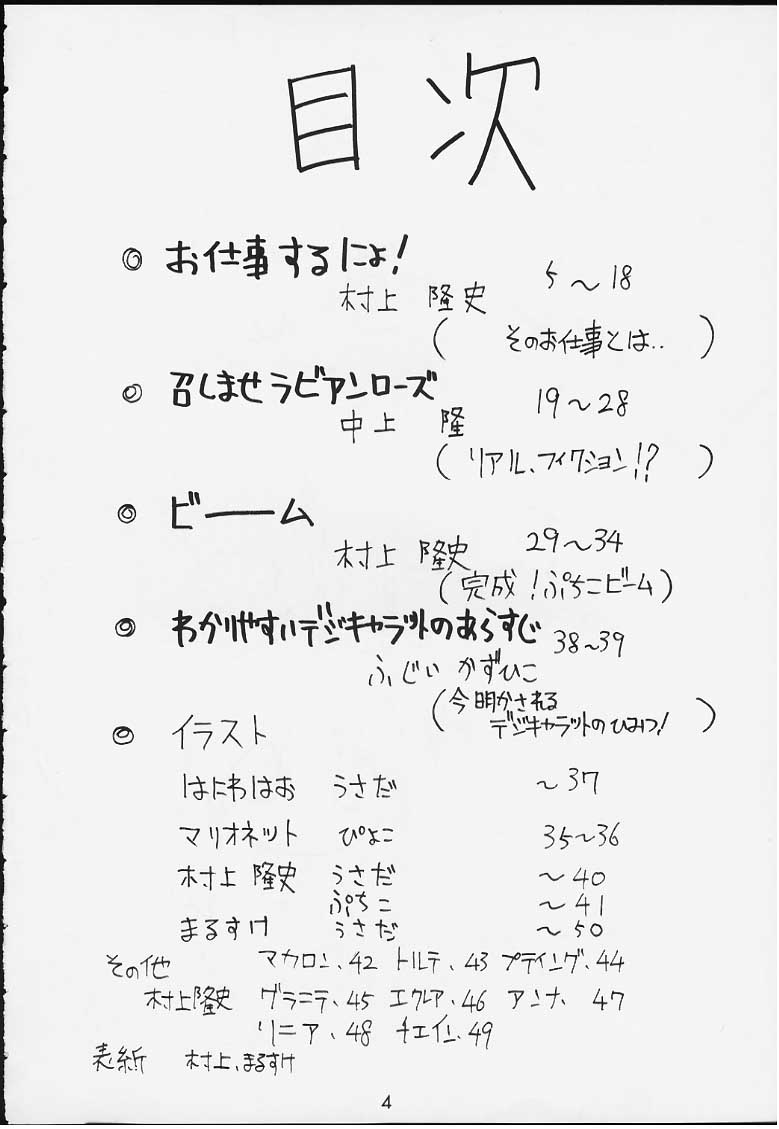 目次
◎ お仕事するにょ! 5～18
村上 隆史
(そのお仕事とは..)
◎ 召しませラビアンローズ 19～28
中上 隆
(リアル、フィクション!?)
◎ ビーーム
村上 隆史 29～34
(完成!ぷちこビーム)
◎ わかりやすいデジキャラットのあらすじ 38～39
ふじい かずひこ
(今明かされる
デジキャラットのひみつ!)
◎ イラスト
はにわはお うさだ ～37
マリオネット ぴよこ 35～36
村上 隆史 うさだ ～40
ぷちこ ～41
まるすけ うさだ ～50
その他 マカロン、42 トルテ、43 プティング、44
村上隆史 グラニテ、45 エクレア、46 アンナ、47
リニア、48 チェイン、49
表紙 村上、まるすけ
4